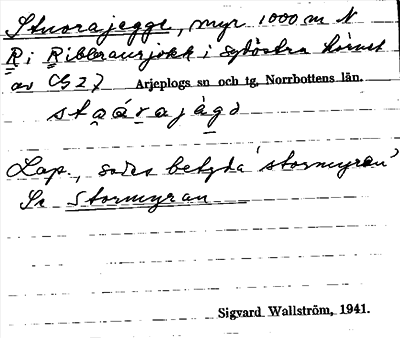 Stuorajegge, myr 1000 m N
R i Ribleaurjokk i sydöstra hörnet
av CG 27 Arjeplogs sn och tg, Norrbottens län.
Lap., sades betyda 'stormyran'
Se Stormyran
Sigvard Wallström, 1941.